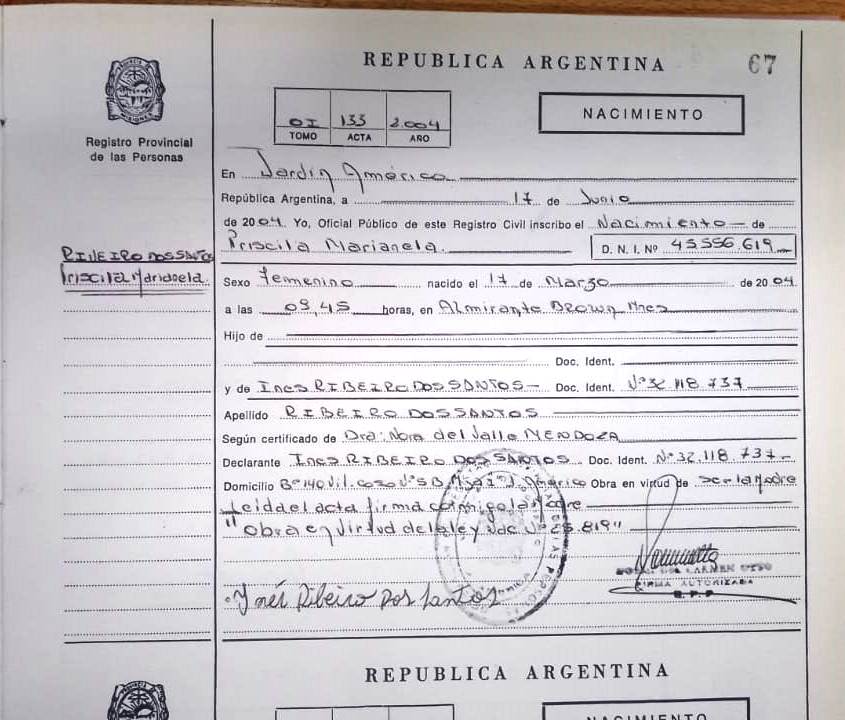 REPUBLICA ARGENTINA
67
OI 133 2.004
TOMO ACTA AÑO
NACIMIENTO
Registro Provincial
de las Personas
En Jardín América
República Argentina, a 17 de Junio
de 2004. Yo, Oficial Público de este Registro Civil inscribo el Nacimiento de
Priscila Marianela. D. N. I. Nº 45556.619
RIBEIRO DOS SANTOS
Priscila Marianela.
Sexo Femenino nacido el 17 de Marzo de 2004
a las 09,45 horas, en Almirante Brown Mnes
Hijo de
Doc. Ident.
y de Ines RIBEIRO DOS SANTOS Doc. Ident. Nº32.118.737
Apellido RIBEIRO DOS SANTOS
Según certificado de Dra: Nora del Valle MENDOZA
Declarante Ines RIBEIRO DOS SANTOS Doc. Ident. Nº32.118.737-
Domicilio Bº 140 Vil. casa Nº J. América Obra en virtud de ser la Madre
Leida el acta firma conmigo la Madre
"Obra en virtud de la ley Nac. Nº 25.819"
Ynés Ribeiro Dos Santos
DEL CARMEN
FIRMA AUTORIZADA
R.P.P
REPUBLICA ARGENTINA
NACIMIENTO